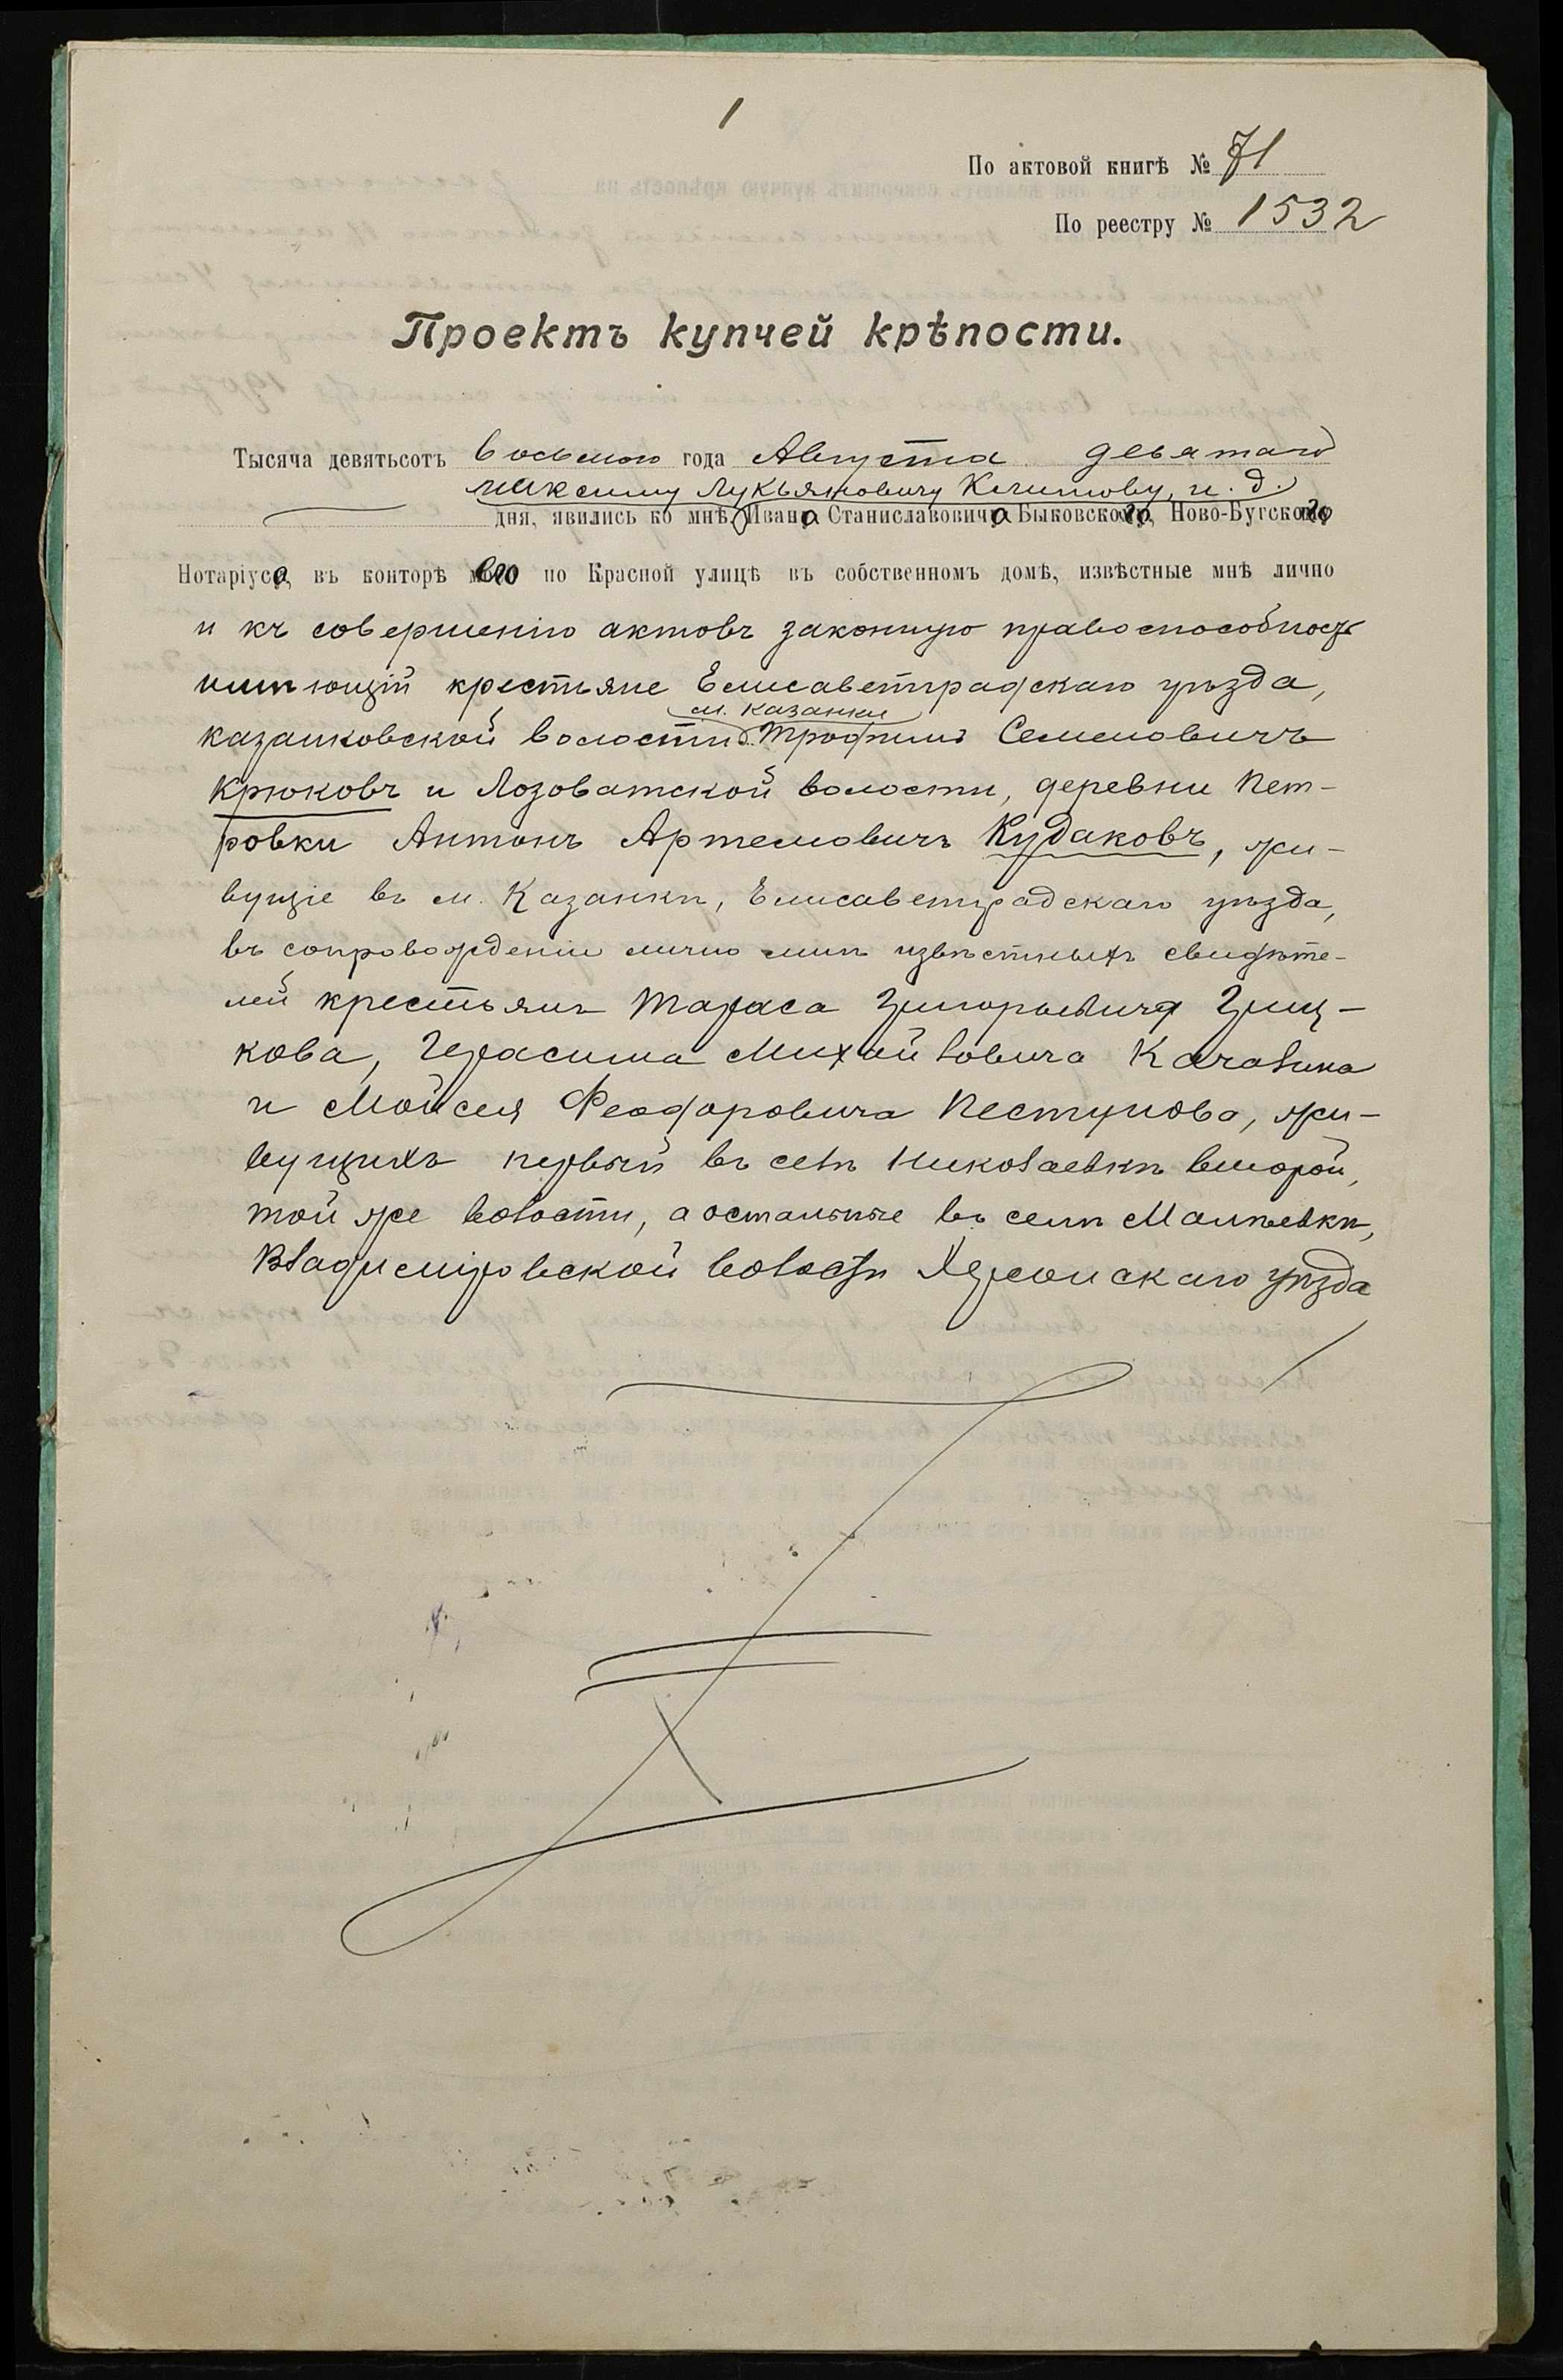 1
По актовой книгѣ № 71
По реестру № 1532
Проектъ купчей крѣпости.
Тысяча девятьсотъ восьмого года Августа девятаго
Максиму Лукьяновичу Климову, и. д.
дня, явились ко мнѣ, Ивана Станиславовича Быковскаго, Ново-Бугскаго
Нотаріуса, въ конторѣ его по Красной улицѣ въ собственномъ домѣ, извѣстные мнѣ лично
и къ совершенію актовъ законную правоспособность
имѣющій крестьяне Елисаветградскаго уѣзда,
м. Казанки
Казанковской волости Трофимъ Семеновичъ
Крюковъ и Лозоватской волости, деревни Пет-
ровки Антонъ Артемовичъ Кудаковъ, жи-
вущіе въ м. Казанкѣ, Елисаветградскаго уѣзда,
въ сопровожденіи лично мнѣ извѣстныхъ свидѣте-
лей крестьянъ Тараса Григорьевича Гриц-
кова, Герасима Михайловича Качалина
и Мойсея Феодоровича Пестунова, жи-
вущихъ первый въ селѣ Николаевкѣ второй,
той же волости, а остальные въ селѣ Малѣевкѣ,
Владиміровской волости Херсонскаго уѣзда